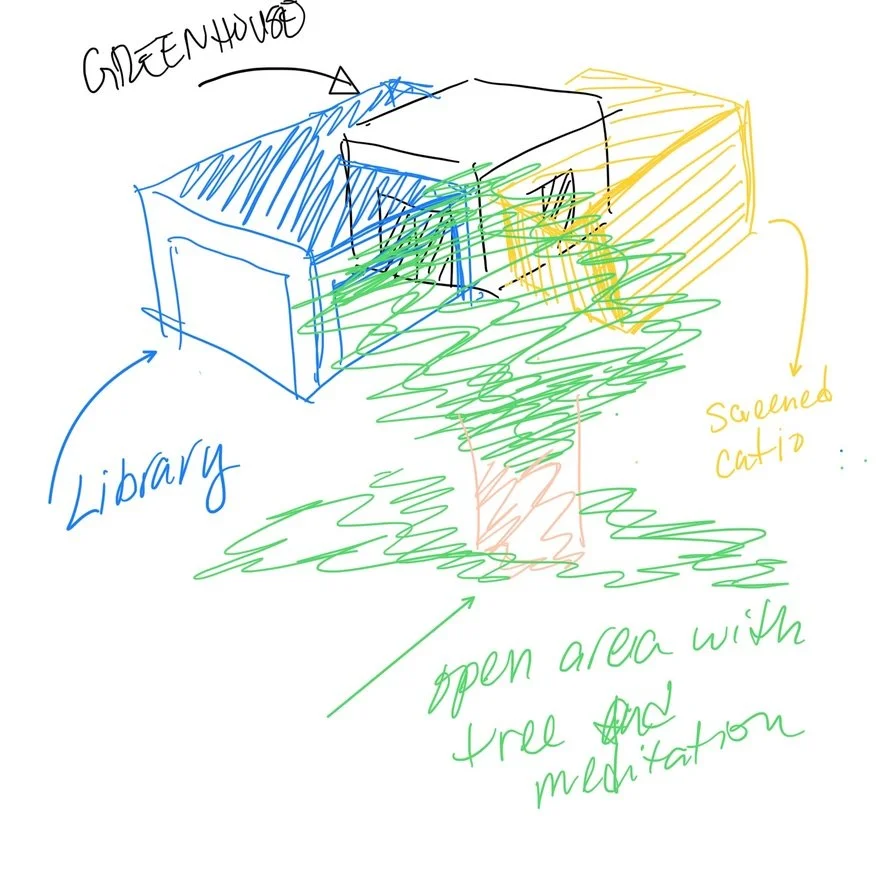 GREENHOUSE
Library
screened
catio
open area with
tree and
meditation